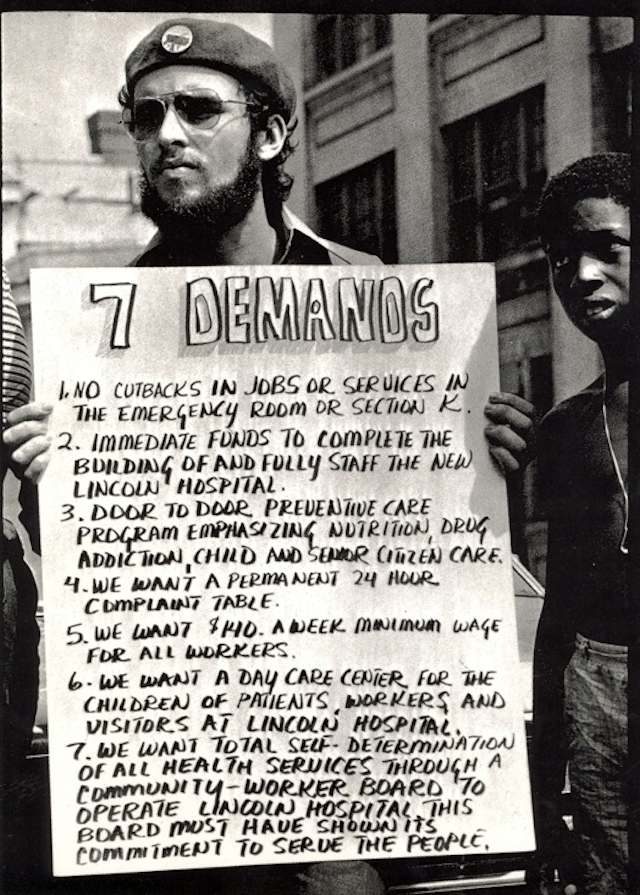 7 DEMANDS
1. NO CUTBACKS IN JOBS OR SERVICES IN
THE EMERGENCY ROOM OR SECTION K.
2. IMMEDIATE FUNDS TO COMPLETE THE
BUILDING OF AND FULLY STAFF THE NEW
LINCOLN HOSPITAL.
3. DOOR TO DOOR PREVENTIVE CARE
PROGRAM EMPHASIZING NUTRITION, DRUG
ADDICTION, CHILD AND SENIOR CITIZEN CARE.
4. WE WANT A PERMANENT 24 HOUR
COMPLAINT TABLE.
5. WE WANT $140. A WEEK MINIMUM WAGE
FOR ALL WORKERS.
6. WE WANT A DAY CARE CENTER FOR THE
CHILDREN OF PATIENTS, WORKERS AND
VISITORS AT LINCOLN HOSPITAL.
7. WE WANT TOTAL SELF-DETERMINATION
OF ALL HEALTH SERVICES THROUGH A
COMMUNITY-WORKER BOARD TO
OPERATE LINCOLN HOSPITAL THIS
BOARD MUST HAVE SHOWN ITS
COMMITMENT TO SERVE THE PEOPLE.